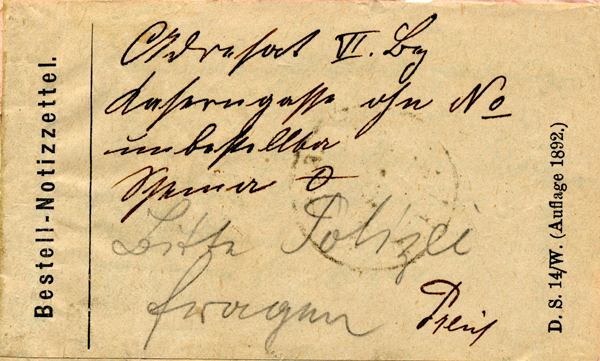 Bestell-Notizzettel.
Adresat VI. Bez
Kaserngasse ohn No
unbestellba
Bitte Polizei
fragen
D. S. 14/W. (Auflage 1892.)